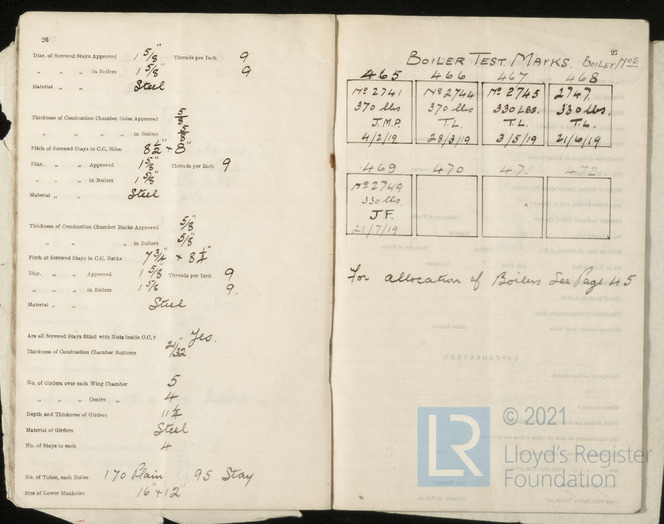 26
Diar. of Screwed Stays Approved 1 5/8" Threads per Inch 9
" " " in Boilers 1 5/8" 9
Material " " Steel
Thickness of Combustion Chamber Sides Approved 5/8"
" " " " in Boilers 5/8"
Pitch of Screwed Stays in C.C. Sides 8 1/2" + 8"
Diar. " " Approved 1 5/8" Threads per Inch 9
" " in Boilers 1 5/8"
Material " " Steel
Thickness of Combustion Chamber Backs Approved 5/8"
" " " " in Boilers 5/8"
Pitch of Screwed Stays in C.C. Backs 7 3/4" + 8 1/4"
Diar. " " Approved 1 5/8" Threads per Inch 9
" " in Boilers 1 5/8 9.
Material " Steel
Are all Screwed Stays fitted with Nuts inside C.C.? Yes.
Thickness of Combustion Chamber Bottoms 21/32"
No. of Girders over each Wing Chamber 5
" " " Centre " 4
Depth and Thickness of Girders
Material of Girders Steel
No. of Stays in each 4
No. of Tubes, each Boiler 170 Plain 95 Stay
Size of Lower Manholes 16" + 12"
27
BOILER TEST MARKS. BOILER NOS
465 466 467 468
No 2741 No 2744 No 2745 2747
370 lbs 370 lbs 330 LBS. 330 lbs.
J.M.P. T.L. T.L. T.L.
4/2/19 28/3/19 3/5/19 21/6/19
469 470 47 472
No 2749
330 lbs
J.F.
21/7/19
For allocation of Boilers See Page 45
LR © 2021
Lloyd's Register
Foundation